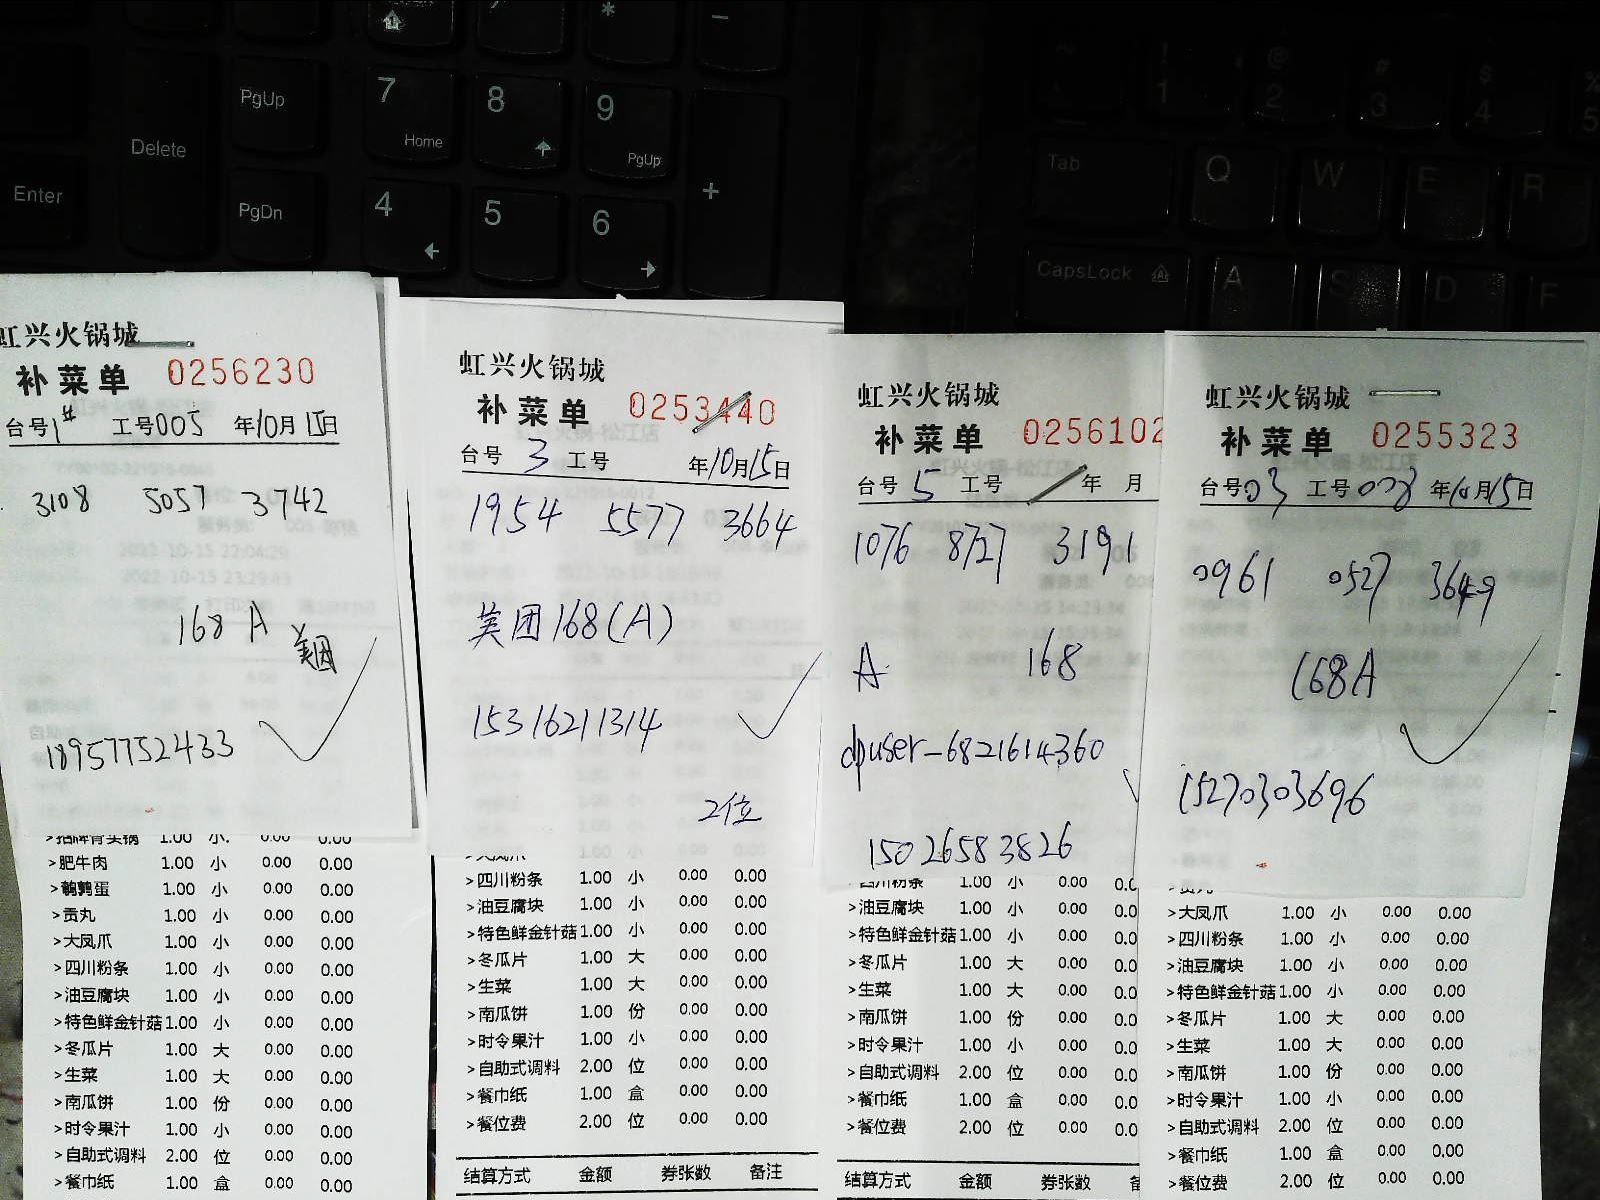 PgUp
7
Home
8
9
PgUp
*
-
Delete
+
Enter
PgDn
4
5
6
Tab
Q
W
E
R
CapsLock
A
S
D
F
1
2
3
4
5
虹兴火锅城
补菜单 0256230
台号1# 工号005 年10月15日
3108 5057 3942
168 A 美团
18957752433
>招牌骨头锅 1.00 小 0.00 0.00
>肥牛肉 1.00 小 0.00 0.00
>鹌鹑蛋 1.00 小 0.00 0.00
>贡丸 1.00 小 0.00 0.00
>大凤爪 1.00 小 0.00 0.00
>四川粉条 1.00 小 0.00 0.00
>油豆腐块 1.00 小 0.00 0.00
>特色鲜金针菇 1.00 小 0.00 0.00
>冬瓜片 1.00 大 0.00 0.00
>生菜 1.00 大 0.00 0.00
>南瓜饼 1.00 份 0.00 0.00
>时令果汁 1.00 小 0.00 0.00
>自助式调料 2.00 位 0.00 0.00
>餐巾纸 1.00 盒 0.00 0.00
虹兴火锅城
补菜单 0253440
台号 3 工号 年10月15日
1954 5577 3664
美团168(A)
15316211314
2位
>大凤爪 1.00 小
>四川粉条 1.00 小 0.00 0.00
>油豆腐块 1.00 小 0.00 0.00
>特色鲜金针菇 1.00 小 0.00 0.00
>冬瓜片 1.00 大 0.00 0.00
>生菜 1.00 大 0.00 0.00
>南瓜饼 1.00 份 0.00 0.00
>时令果汁 1.00 小 0.00 0.00
>自助式调料 2.00 位 0.00 0.00
>餐巾纸 1.00 盒 0.00 0.00
>餐位费 2.00 位 0.00 0.00
结算方式 金额 券张数 备注
虹兴火锅城
补菜单 0256102
台号 5 工号 年 月
1076 8727 3191
A 168
dpuser-6821614360
15026583826
>四川粉条 1.00 小 0.00 0.0
>油豆腐块 1.00 小 0.00 0.0
>特色鲜金针菇 1.00 小 0.00 0.0
>冬瓜片 1.00 大 0.00 0.0
>生菜 1.00 大 0.00 0.0
>南瓜饼 1.00 份 0.00 0.0
>时令果汁 1.00 小 0.00 0.0
>自助式调料 2.00 位 0.00 0.0
>餐巾纸 1.00 盒 0.00 0.0
>餐位费 2.00 位 0.00 0.0
结算方式 金额 券张数
虹兴火锅城
补菜单 0255323
台号03 工号008 年10月15日
0961 0527 3649
168A
15270303696
>贡丸
>大凤爪 1.00 小 0.00 0.00
>四川粉条 1.00 小 0.00 0.00
>油豆腐块 1.00 小 0.00 0.00
>特色鲜金针菇 1.00 小 0.00 0.00
>冬瓜片 1.00 大 0.00 0.00
>生菜 1.00 大 0.00 0.00
>南瓜饼 1.00 份 0.00 0.00
>时令果汁 1.00 小 0.00 0.00
>自助式调料 2.00 位 0.00 0.00
>餐巾纸 1.00 盒 0.00 0.00
>餐位费 2.00 位 0.00 0.00